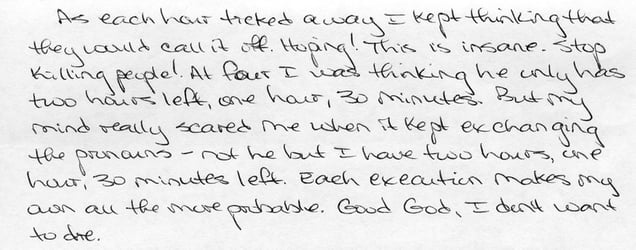 As each hour ticked away I kept thinking that
they would call it off. Hoping! This is insane. Stop
killing people! At four I was thinking he only has
two hours left, one hour, 30 minutes. But my
mind really scared me when it kept exchanging
the pronouns - not he but I have two hours, one
hour, 30 minutes left. Each execution makes my
own all the more probable. Good God, I don't want
to die.